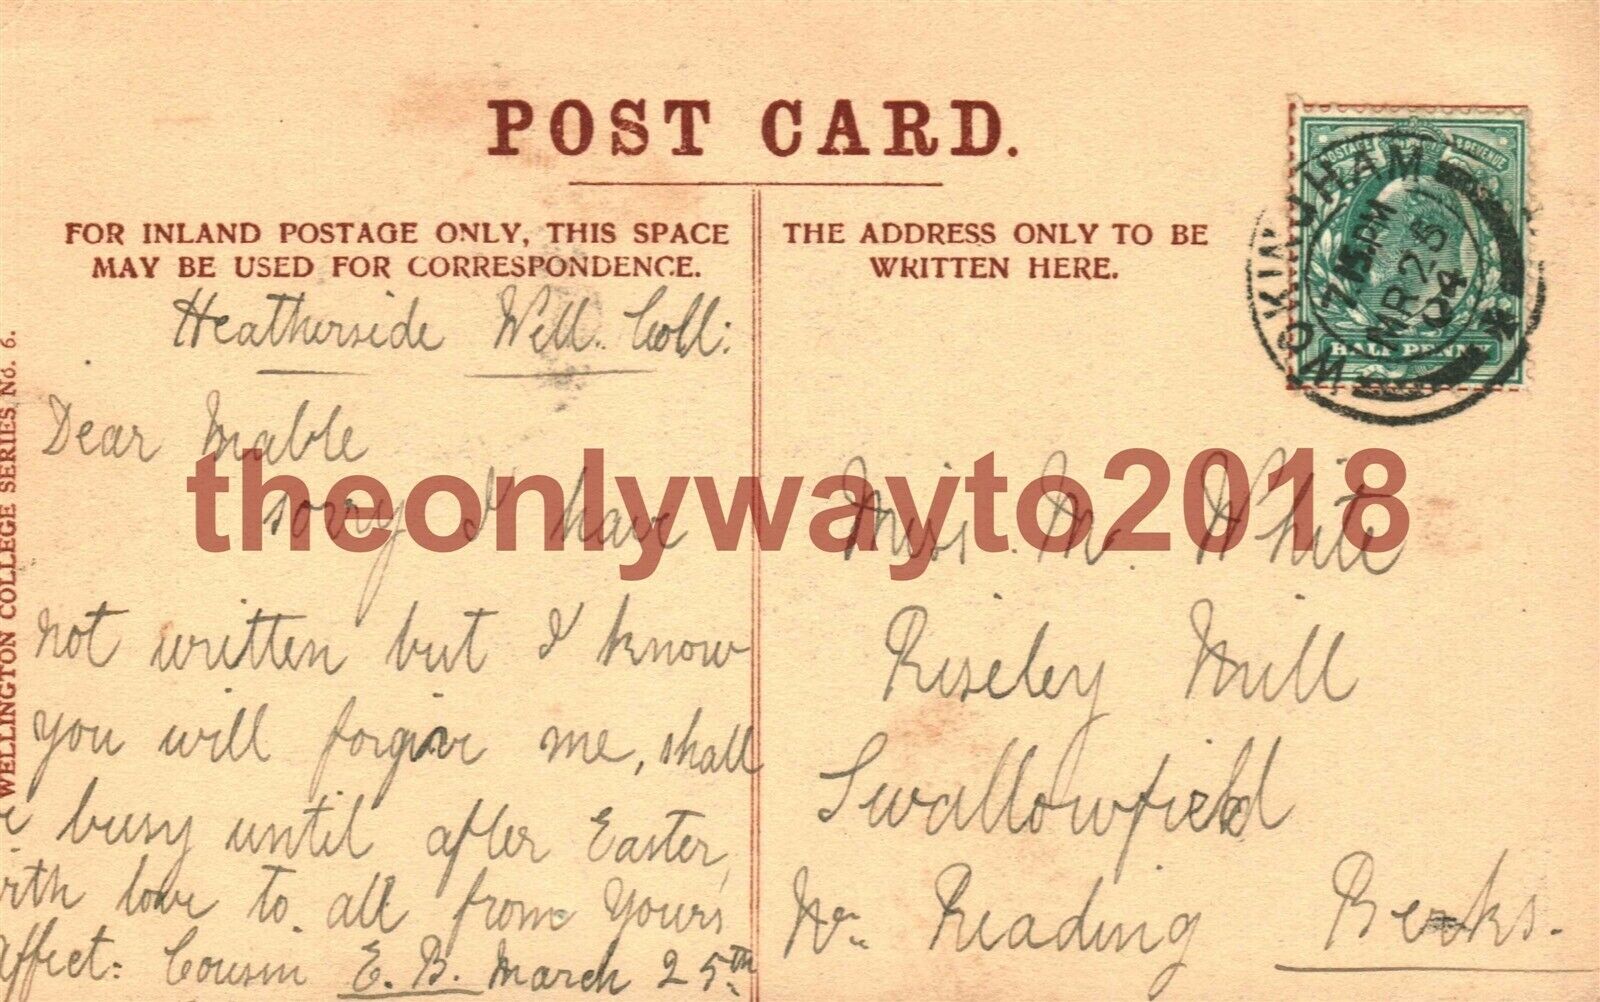 POST CARD.
FOR INLAND POSTAGE ONLY, THIS SPACE
MAY BE USED FOR CORRESPONDENCE.
THE ADDRESS ONLY TO BE
WRITTEN HERE.
WELLINGTON COLLEGE SERIES No. 6.
Heatherside Well. Coll:
Dear Mable
sorry I have
not written but I know
you will forgive me, shall
e busy until after Easter,
ith love to all from Yours
Affect: Cousin E. B. March 25th
Miss. M. White
Riseley Mill
Swallowfield
Nr. Reading Berks.
POSTAGE REVENUE
HALF PENNY
WOKINGHAM
7.15 PM
MR 25
04
theonlywayto2018